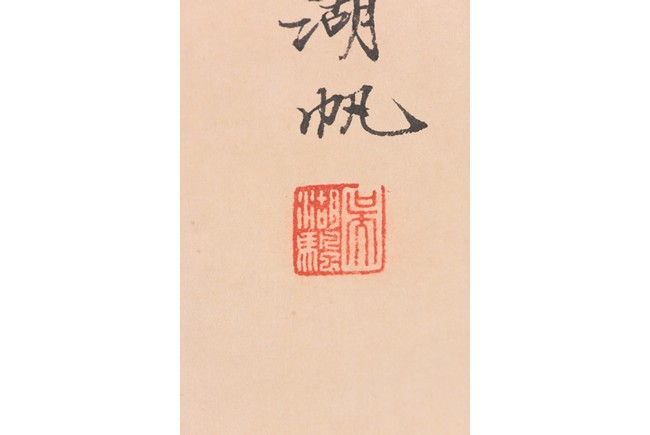 湖
帆
吳
湖颿